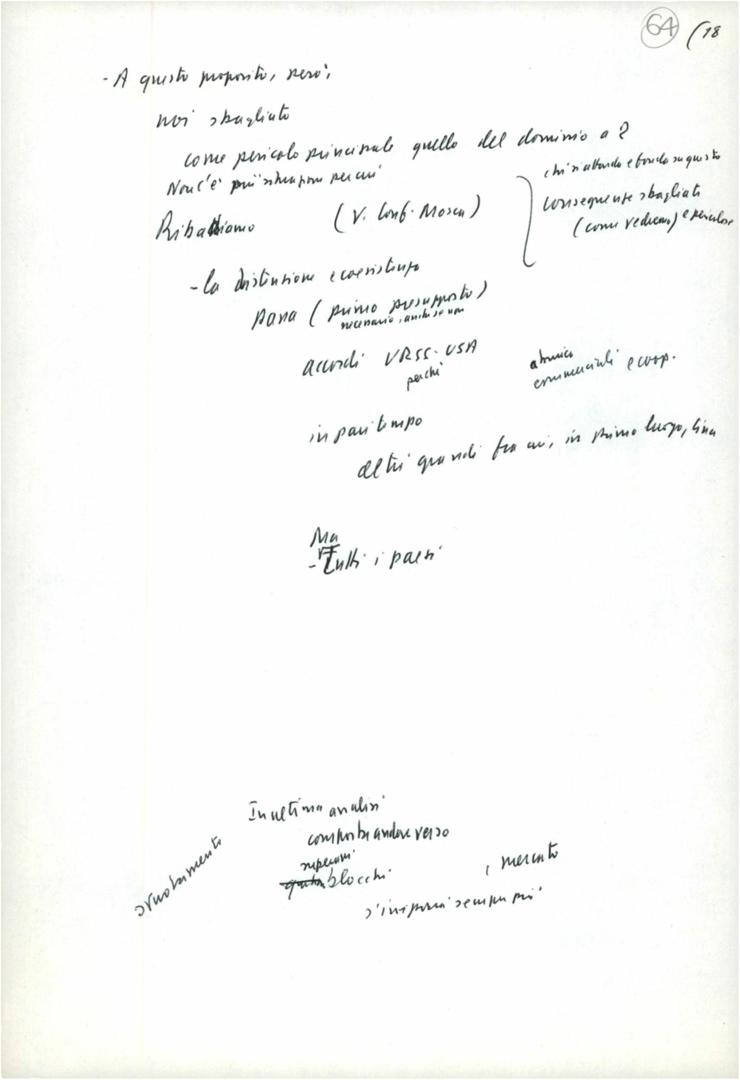 64 (18
- A questo proposito, però,
noi sbagliato
come pericolo principale quello del dominio a 2
Non c'è più situazione per cui
chi si attarda e fonda su questo
conseguenze sbagliate
(come vediamo) e pericolose
Ribattiamo (V. Conf. Mosca)
- la distensione e coesistenza
passa (primo presupposto)
necessario, anche se non
accordi URSS-USA
perché
atomici
commerciali e coop.
in pari tempo
altri grandi fra cui, in primo luogo, Cina
Ma
- Tutti i paesi
In ultima analisi
comporta andare verso
superam
blocchi
svuotamento
, mercato
s'imporrà sempre più